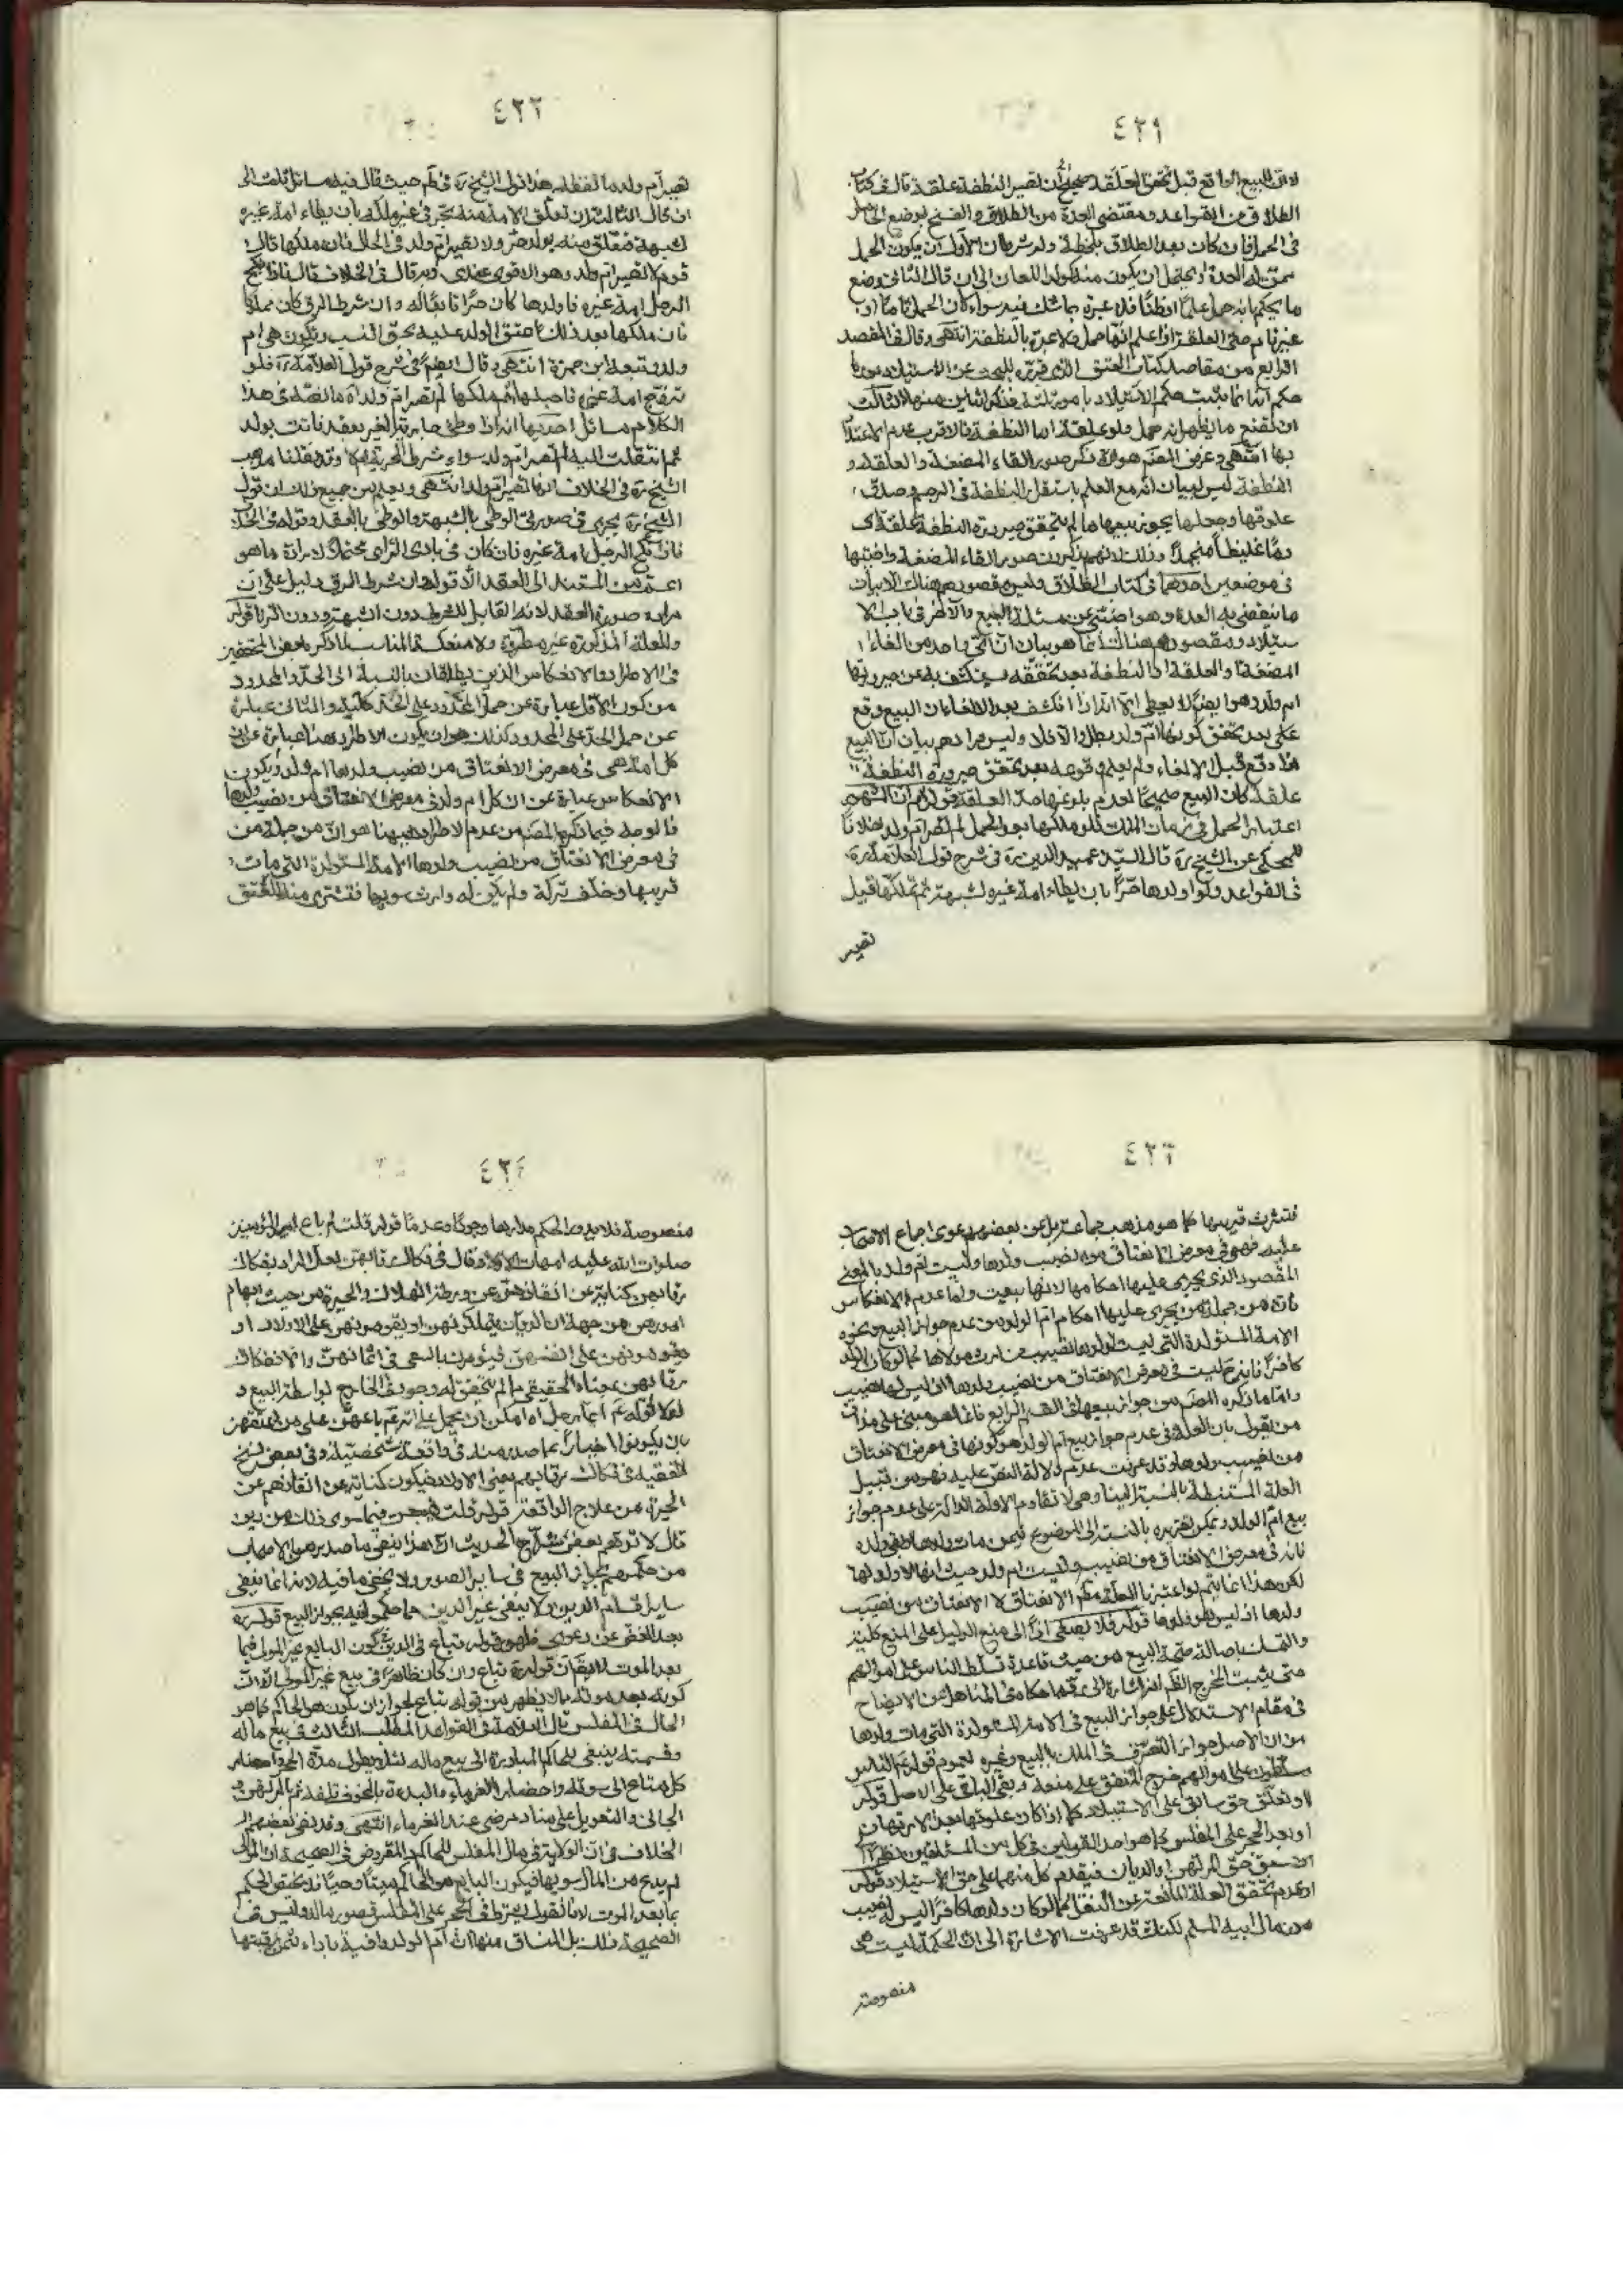 ٤٢١
لان البيع الواقع قبل تحقق العلقة صحيح لن تصير النطفة علقة قال في كتاب
الطلاق من القواعد ومقتضى العدة من الطلاق والفسخ بوضع الحمل
في الحمل فان كان بعد الطلاق بلحظة وله شرطان الاول ان يكون الحمل
ممن له العدة او يحتمل ان يكون منه كولد اللعان الى ان قال الثاني وضع
ما يحكم بانه حمل علما او ظنا فلا عبرة بما شك فيه سواء كان الحمل تاما او
غير تام حتى العلقة اذا علم انها حمل ولا عبرة بالنطفة انتهى وقال في المقصد
الرابع من مقاصد كتاب العتق الذي قرره للبحث عن الاستيلاد
حكم انما يثبت حكم الاستيلاد بامور ثلثة فذكر اثنين منها الثالث
ان تضع ما يظهر انه حمل ولو علقة اما النطفة فالاقرب عدم الاعتداد
بها انتهى وغرض المصنف هو ان ذكر صور القاء المضغة والعلقة و
النطفة ليس لبيان انه مع العلم باستقرار النطفة في الرحم وصدق
علوقها وحملها يجوز بيعها ما لم يتحقق صيرورة النطفة علقة اى
دما غليظا منجمدا وذلك لانهم يذكرون صور القاء المضغة واختيها
في موضعين احدهما في كتاب الطلاق وليس مقصودهم هناك الا بيان
ما تنقضي به العدة وهو اجنبي عن مسئلة البيع والاخر في باب الا
ستيلاد ومقصودهم هناك انما هو بيان ان اي واحد من القاء
المضغة والعلقة او النطفة بعد تحققه يستكشف به عن صيرورتها
ام ولد وهو ايضا لا يعطي الا انه اذا انكشف بعد الالقاء ان البيع وقع
على من تحقق كونها ام ولد بطل والا فلا وليس مرادهم بيان ان البيع
اذا وقع قبل الالقاء ولم يعلم وقوعه بعد تحقق صيرورة النطفة
علقة كان البيع صحيحا لعدم بلوغها حد العلقة قوله ثم ان المشهور
اعتبار الحمل في زمان الملك فلو ملكها بعد الحمل لم تصر ام ولد خلافا
للمحكي عن الشيخ ره قال السيد عميد الدين ره في شرح قول العلامة ره
في القواعد ولو اولدها حرا بان يطاء امة غيره لشبهة ثم تملكها قيل
تصير
٤٢٢
تصير ام ولد ما لفظه هذا قول الشيخ ره في ط حيث قال فيه مسائل ثلث الى
ان قال الثالث ان تعلق الامة منه بحر في غير ملكه بان يطاء امة غيره
لشبهة فتعلق منه بولد حر ولا تصير ام ولد في الحال فان ملكها قال
قوم لا تصير ام ولد وهو الاقوى عندي وبه قال في الخلاف فقال اذا نكح
الرجل امة غيره فاولدها كان حرا تابعا له وان شرط الرق كان مملوكا
فان ملكها بعد ذلك عتق الولد عليه بحق النسب وتكون هي ام
ولد وتبعه ابن حمزة انتهى وقال ايضا في شرح قول العلامة ره فلو
تزوج امة غيره فاحبلها ثم ملكها لم تصر ام ولد اه ما نصه في هذا
الكلام مسائل احديها انه اذا وطئ جارية الغير بعقد فاتت بولد
ثم انتقلت اليه لم تصر ام ولد سواء شرط الحرية ام لا وقد نقلنا مذهب
الشيخ ره في الخلاف انها تصير ام ولد انتهى ويعلم من جميع ذلك ان قول
الشيخ ره يجري في صورتي الوطي بالشبهة والوطي بالعقد وقوله في الخلاف
فان نكح الرجل امة غيره فان كان في بادي الراي محتملا لارادة ما هو
اعم من المستند الى العقد الا ان قوله ان شرط الرق دليل على ان
مراده صورة العقد لانه القابل للشرط دون الشبهة ودون الزنا قوله
والعلة المذكورة غير مطردة ولا منعكسة المناسب لما ذكر بعض المحققين
في الاطراد والانعكاس الذين يطلقان بالنسبة الى الحد والمحدود
من كون الاول عبارة عن حمل المحدود على الحد كلية والثاني عبارة
عن حمل الحد على المحدود كذلك هو ان يكون الاطراد هنا عبارة عن ان
كل امة هي في معرض الانعتاق من نصيب ولدها ام ولد ويكون
الانعكاس عبارة عن ان كل ام ولد في معرض الانعتاق من نصيب ولدها
فالوجه فيما ذكره المصنف من عدم الاطراد هيهنا هو ان من جملة من
في معرض الانعتاق من نصيب ولدها الامة المستولدة التي مات
قريبها وخلف تركة ولم يكن له وارث سويها فتشترى منها لتعتق
٤٢٣
فتشترث قريبها كما هو مذهب جماعة بل عن بعضهم دعوى اجماع الاصحاب
عليه فهي في معرض الانعتاق من نصيب ولدها وليست ام ولد بالمعنى
المقصود الذي يجري عليها احكامها لانها بيعت واما عدم الانعكاس
فانه من جملة من يجري عليها احكام ام الولد من عدم جواز البيع ونحوه
الامة المستولدة التي ليست لولدها نصيب من ارث مولاها كما لو كان الولد
كافرا فانها ح ليست في معرض الانعتاق من نصيب ولدها اذ ليس لها نصيب
واما ما ذكره المصنف من جواز بيعها في القسم الرابع فانما هو مبني على مذاق
من يقول بان العلة في عدم جواز بيع ام الولد هو كونها في معرض الانعتاق
من نصيب ولدها وقد عرفت عدم دلالة النص عليه فهو من قبيل
العلة المستنبطة بالنسبة الينا وهي لا تقاوم الادلة الدالة على عدم جواز
بيع ام الولد ويمكن تقريره بالنسبة الى الموضوع فيمن مات ولدها وبقي ولده
فانه في معرض الانعتاق من نصيب وليست ام ولد حيث انها لا ولد لها
لكن هذا انما يتم لو اعتبرنا العلة مطلق الانعتاق لا الانعتاق من نصيب
ولدها اذ ليس قوله فلا يصغى اذا الى منع الدليل على المنع كلية
والتمسك باصالة صحة البيع من حيث قاعدة تسلط الناس على اموالهم
حتى يثبت المخرج الظاهر انه اشارة الى ما حكاه في المناهل عن الايضاح
في مقام الاستدلال على جواز البيع في الامة المستولدة التي مات ولدها
من ان الاصل جواز التصرف في الملك بالبيع وغيره لعموم قوله ع الناس
مسلطون على اموالهم خرج المتفق على منعه وبقي الباقي على الاصل قوله
او تعلق حق سابق على الاستيلاد كما اذا كان علوقها بعد الارتهان
او بعد الحجر على المفلس كما هو احد القولين في كل من المسئلتين نظرا الى
سبق حق المرتهن والديان فيقدم كل منهما على حق الاستيلاد قوله
او عدم تحقق العلة المانعة عن النقل كما لو كان ولدها كافرا ليس له نصيب
من مال ابيه المسلم لكنك قد عرفت الاشارة الى ان الحكمة ليست هي
منصوصة
٤٢٤
منصوصة فلا يدور الحكم مدارها وجودا وعدما قوله قلت لم باع امير المؤمنين
صلوات الله عليه امهات الاولاد قال في فكاك رقابهن لعل المراد بفكاك
رقابهن كناية عن انقاذهن عن ورطة الهلاك والحيرة من حيث ابهام
امورهن من جهة ان الديان يتملكونهن او يقومونهن على الاولاد او
يقومونهن على انفسهن فيؤمرن بالسعي في اثمانهن والا ففكاك
رقابهن بمعناه الحقيقي ما لم يتحقق له وجود في الخارج بواسطة البيع و
لعله لقوله ع ايما رجل او امكن ان يحمل على انه ع باعهن على من اعتقهن
بان يكون الاخبار بما صدر منه في واقعة شخصية وفي بعض نسخ
الفقيه في فكاك رقابهم يعني الاولاد فيكون كناية عن انقاذهم عن
الحيرة من علاج الواقعة قوله قلت فيبعن فيما سوى ذلك من دين
قال لا توهم بعض شراح الحديث ان هذا ينفي ما صدر من الاصحاب
من حكمهم بجواز البيع في ساير الصور ولا يخفى ما فيه لانه انما ينفي
ساير اقسام الدين ولا ينفي غير الدين مما حكموا فيه بجواز البيع قوله ره
بعد الغض عن دعوى ظهور قوله تباع في الدين في كون البايع غير المولى فيما
بعد الموت لا يقال ان قوله ع تباع وان كان ظاهرا في بيع غير المولى الا ان
كونه بعد موته مما لا يظهر من قوله تباع لجواز ان يكون هو الحاكم كما هو
الحال في المفلس قال العلامة في القواعد المطلب الثالث في بيع ماله
وقسمته ينبغي للحاكم المبادرة الى بيع ماله لئلا يطول مدة الحجر واحضار
كل متاع الى سوقه واحضار الغرماء والبدءة بالمخوف تلفه ثم بالرهن و
الجاني والتعويل على مناد مرضي عند الغرماء انتهى وقد نفى بعضهم
الخلاف في ان الولاية في مال المفلس للحاكم والمفروض في الصحيحة ان المولى
لم يدع من المال سويها فيكون البايع هو الحاكم ميتا وحيا فلا يختص الحكم
بما بعد الموت لانا نقول يشترط في الحجر على المفلس قصور ماله وليس في
الصحيحة ذلك بل المنساق منها ان ام الولد وافية باداء ثمن رقبتها